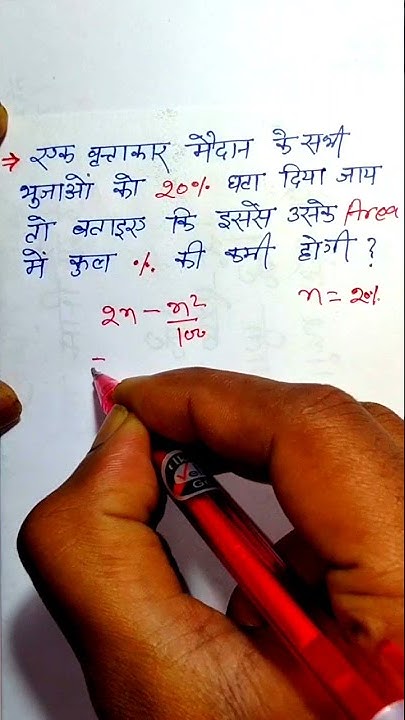 → एक वृत्ताकार मैदान के सभी
भुजाओं को 20% घटा दिया जाय
तो बताइए कि इससे उसके Area
में कुल % की कमी होगी ?
n = 20%
2n - n²/100
=